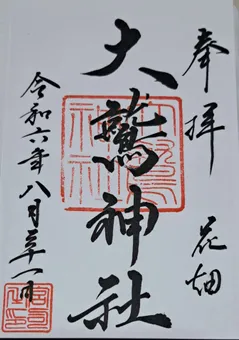 奉拝　花畑
大鷲神社
令和六年八月三十一日